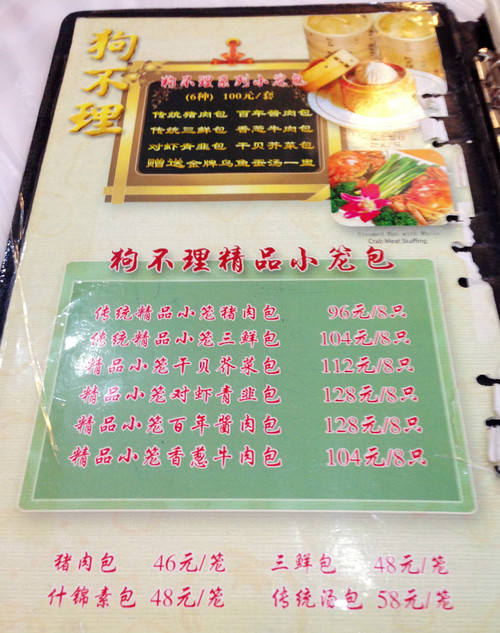 狗不理
狗不理系列小笼包
(6种) 100元/套
传统猪肉包 百年酱肉包
传统三鲜包 香葱牛肉包
对虾青韭包 干贝芥菜包
赠送金牌乌鱼蛋汤一里
Steamed Bun with Whole
Crab Meat Stuffing
狗不理精品小笼包
传统精品小笼猪肉包 96元/8只
传统精品小笼三鲜包 104元/8只
精品小笼干贝芥菜包 112元/8只
精品小笼对虾青韭包 128元/8只
精品小笼百年酱肉包 128元/8只
精品小笼香葱牛肉包 104元/8只
猪肉包 46元/笼 三鲜包 48元/笼
什锦素包 48元/笼 传统汤包 58元/笼